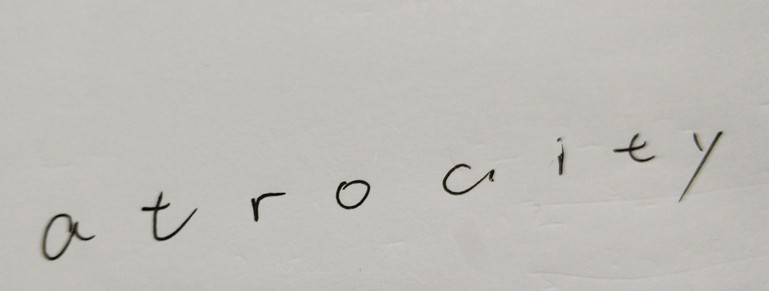 a t r o c i t y